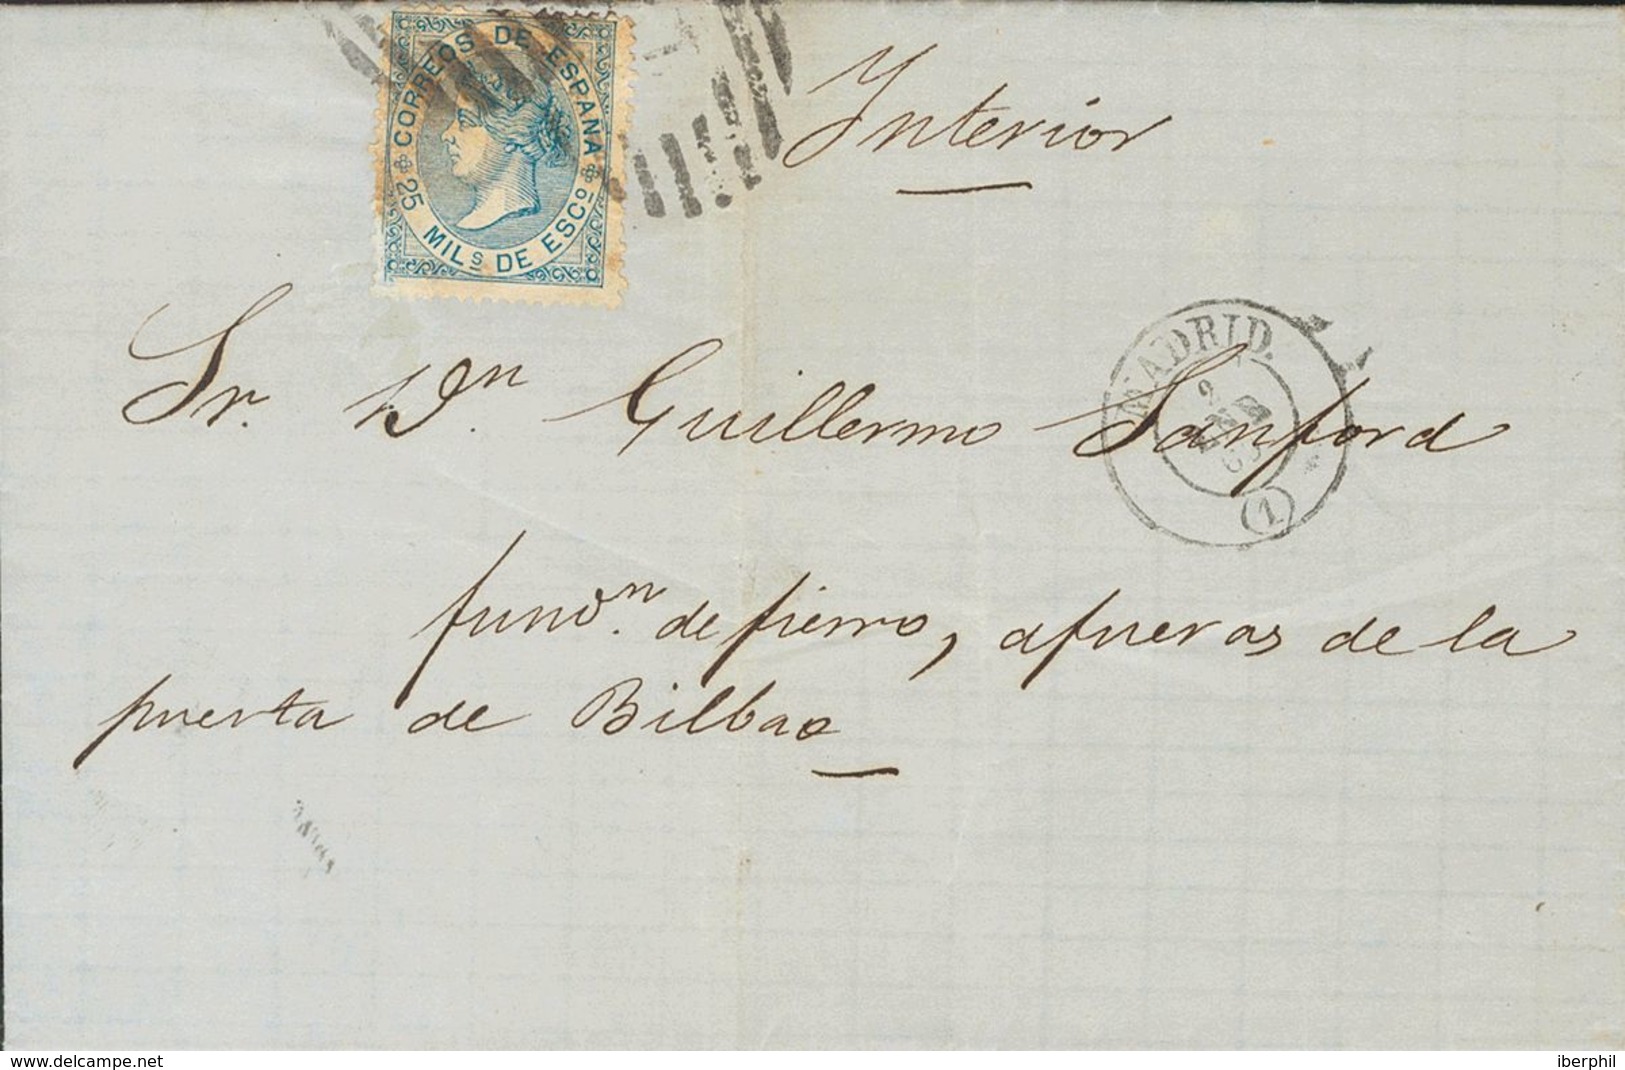 CORREOS DE ESPAÑA
25 MILs DE ESCO
Interior
MADRID.
(1)
Sr. Dn. Guillermo Sanford
fundn. de fierro, afueras de la
puerta de Bilbao
delcampe.net
iberphil